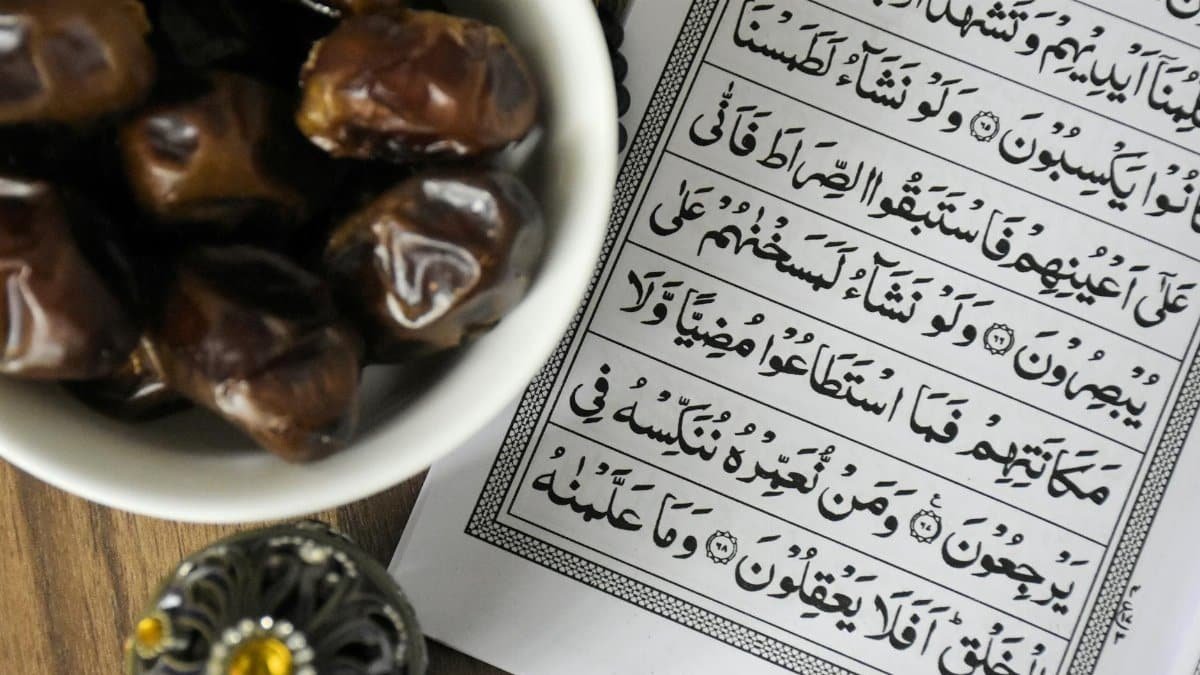 اَيْدِيْهِمْ وَتَشْهَدُ
نُوْا يَكْسِبُوْنَ ۝۶۵ وَلَوْ نَشَآءُ لَطَمَسْنَا
عَلٰۤى اَعْيُنِهِمْ فَاسْتَبَقُوا الصِّرَاطَ فَاَنّٰى
يُبْصِرُوْنَ ۝۶۶ وَلَوْ نَشَآءُ لَمَسَخْنٰهُمْ عَلٰى
مَكَانَتِهِمْ فَمَا اسْتَطَاعُوْا مُضِيًّا وَّلَا
يَرْجِعُوْنَ ۝۶۷ وَمَنْ نُّعَمِّرْهُ نُنَكِّسْهُ فِى
الْخَلْقِؕ اَفَلَا يَعْقِلُوْنَ ۝۶۸ وَمَا عَلَّمْنٰهُ